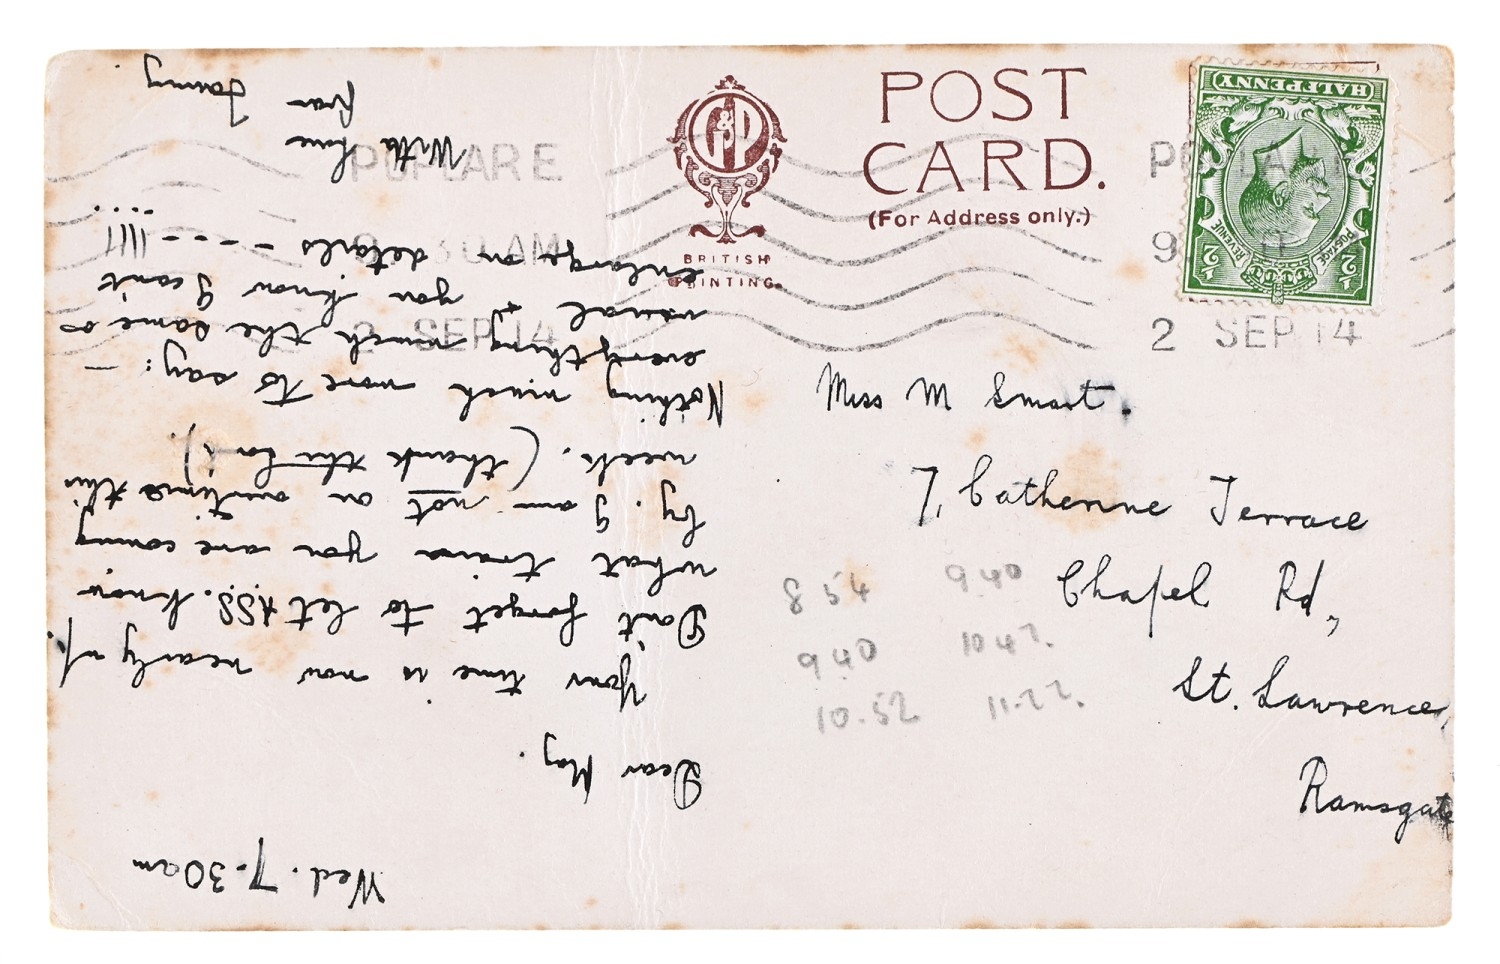 POST
CARD.
(For Address only.)
G&P
BRITISH
PRINTING.
POPLAR E
9 30 AM
2 SEP 14
POPLAR E
9
2 SEP 14
HALFPENNY
POSTAGE
REVENUE
½
½
Miss M Smart.
7, Catherine Terrace
Chapel Rd,
St. Lawrence,
Ramsgate
8 54 9.40
9 40 10 47.
10.52 11.22.
Wed. 7.30am
Dear May.
Your time is now nearly up.
Don't forget to let A.S.S. know
what train you are coming
by. I am not on anytime this
week. (thank the Lor!).
Nothing much more to say: —
everything much the same as
usual & you know I can't
enlarge on details - - - - - !!!!
With love
from